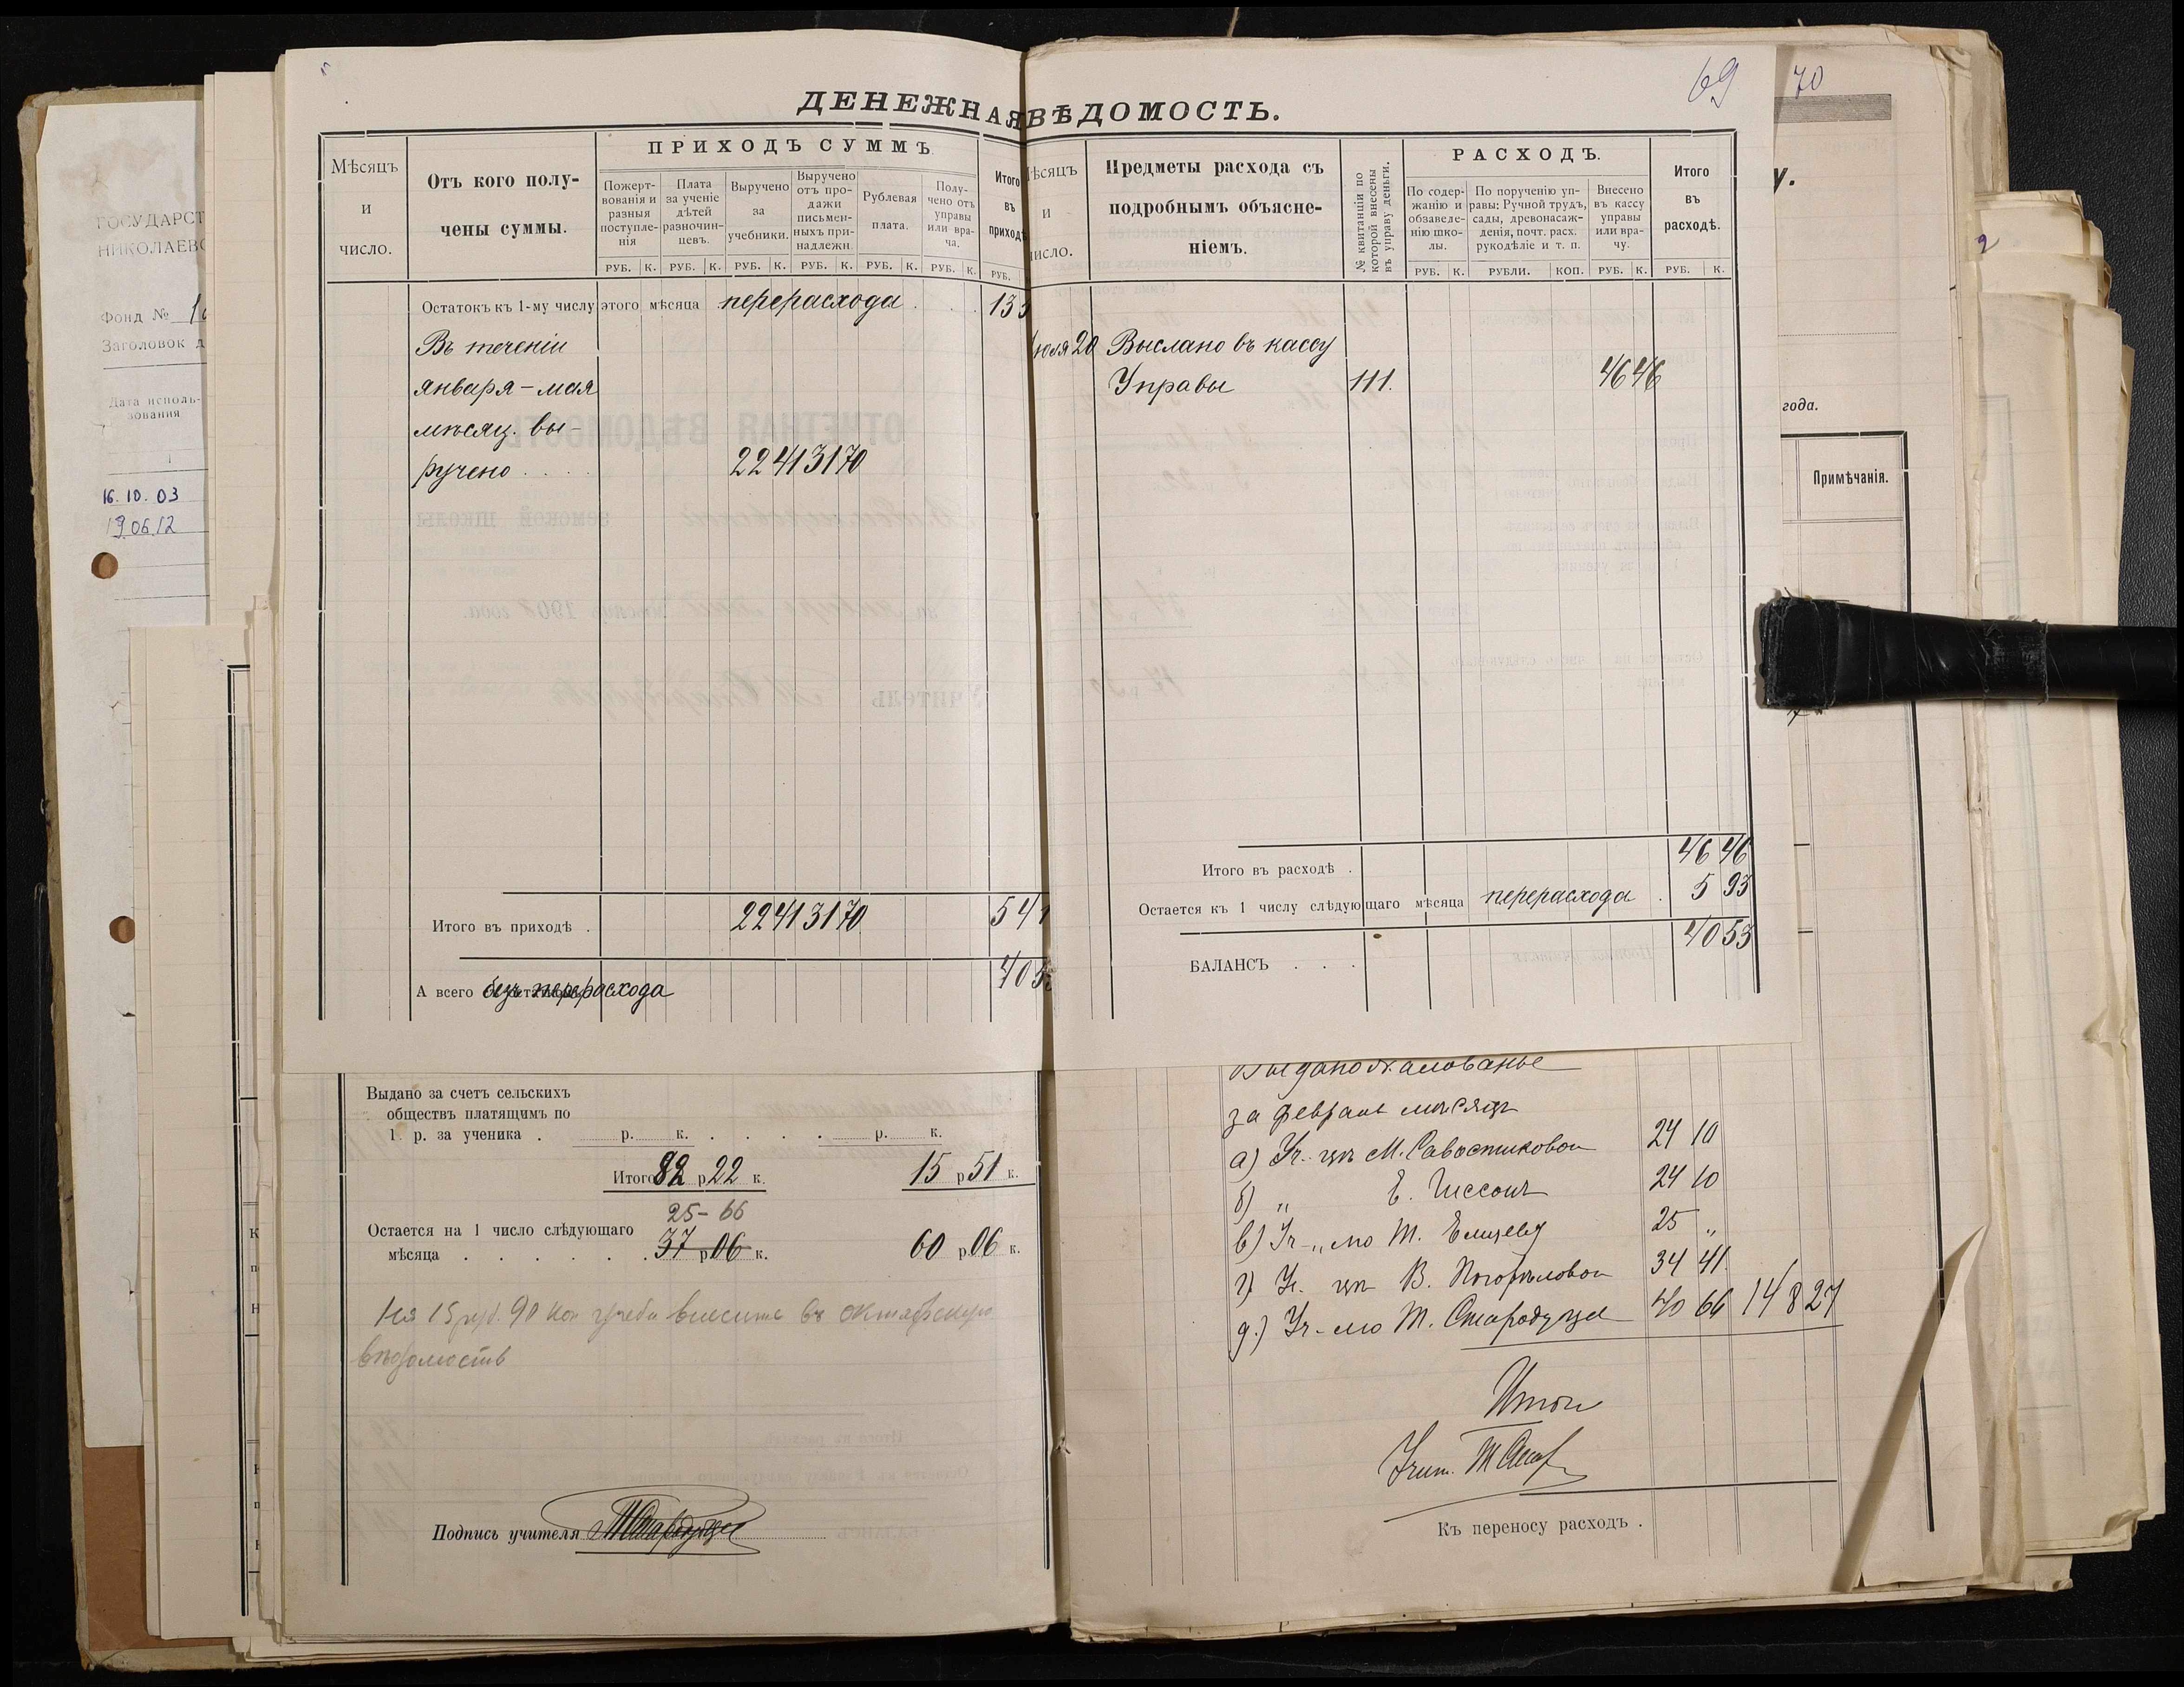 69 70
ДЕНЕЖНАЯ ВѢДОМОСТЬ.
Мѣсяцъ и число.
Отъ кого получены суммы.
ПРИХОДЪ СУММЪ
Пожерт-
вованія и
разныя
поступле-
нія
Плата
за ученіе
дѣтей
разночин-
цевъ.
Выручено
за
учебники.
Выручено
отъ про-
дажи
письмен-
ныхъ при-
надлежн.
Рублевая
плата.
Полу-
чено отъ
управы
или вра-
ча.
Итого
въ
приходѣ
РУБ. К. РУБ. К. РУБ. К. РУБ. К. РУБ. К. РУБ. К. РУБ.
Остатокъ къ 1-му числу этого мѣсяца перерасхода 13
Въ теченіи
января – мая
мѣсяц. вы-
ручено 22 41 31 70
Итого въ приходѣ . 22 41 31 70 54 1
40 5
А всего безъ перерасхода
ѣсяцъ
и
исло.
Предметы расхода съ
подробнымъ объясне-
ніемъ.
№ квитанціи по
которой внесены
въ управу деньги.
РАСХОДЪ.
По содер-
жанію и
обзаведе-
нію шко-
лы.
По порученію уп-
равы: Ручной трудъ,
сады, древонасаж-
денія, почт. расх.
рукодѣліе и т. п.
Внесено
въ кассу
управы
или вра-
чу.
Итого
въ
расходѣ.
РУБ. К. РУБЛИ. КОП. РУБ. К. РУБ. К.
юля 20 Выслано въ кассу
Управы 111. 46 46
Итого въ расходѣ . 46 46
Остается къ 1 числу слѣдующаго мѣсяца перерасхода . 5 93
40 53
БАЛАНСЪ . . .
Выдано за счетъ сельскихъ
обществъ платящимъ по
1 р. за ученика . р. к. . . . . р. к.
Итого 82 р 22 к. 15 р 51 к.
25 – 66
Остается на 1 число слѣдующаго
мѣсяца . . . . . . 37 р 06 к. 60 р. 06 к.
15 руб. 90 коп внесите въ октябрскую
вѣдомость
Подпись учителя
Выдано жалованье
за февраль мѣсяцъ
а) Уч-цѣ М. 24 10
б) „ Е. 24 10
в) Уч-„лю Т. 25 „
г) Уч. цѣ В. Погорѣловой 34 41
д.) Уч-лю Т. Стародуцев 40 66 148 27
Итого
Учит.
Къ переносу расходъ .
ГОСУДАРСТ
НИКОЛАЕВС
Фонд №
Заголовок д
Дата исполь-
зования
16.10.03
19.06.12
у.
года.
Примѣчанія.
2